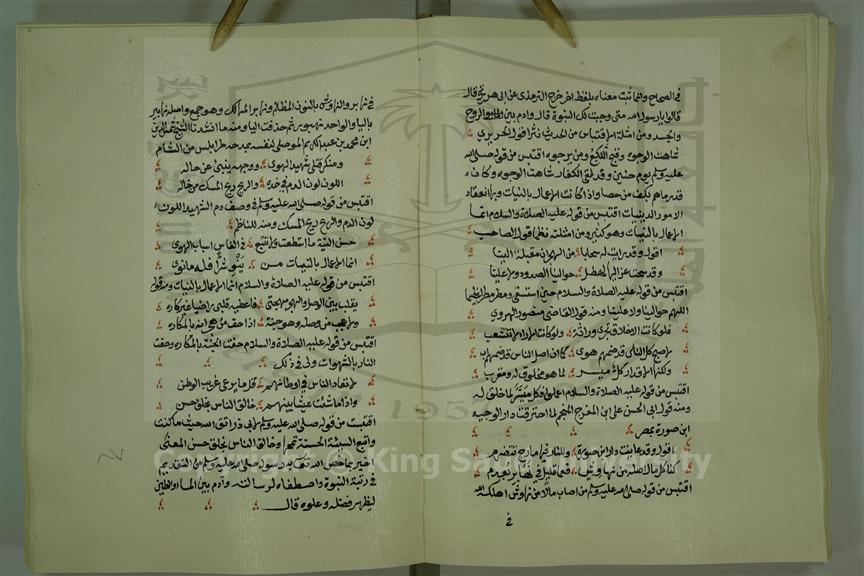 في الصحاح وانما ثبت معناه بلفظ اخر خرج الترمذي عن ابي هريرة قال
قالوا يا رسول الله متى وجبت لك النبوة قال وادم بين الروح
والجسد ومن امثلة الاقتباس من الحديث نثرا قول الحريري
شاهت الوجوه وقبح اللكع ومن يرجوه اقتبس من قوله صلى الله
عليه وسلم يوم حنين وقد لقي الكفار شاهت الوجوه وكان
قد رماهم بكف من حصا واذا كانت الاعمال بالنيات وبها انعقاد
الامور الدينيات اقتبس من قوله عليه الصلاة والسلام انما
الاعمال بالنيات وهو كثير ومن امثلته نظما قول الصاحب
اقول وقد رايت له سحابا من الهجران مقبلة الينا
وقد سحت عزاليها بهطل حوالينا الصدود ولا علينا
اقتبس من قوله عليه الصلاة والسلام حين استسقى ومطر مطرا عظيما
اللهم حوالينا ولا علينا ومنه قول القاضي منصور الهروي
فلو كانت الاخلاق تحوى وراثة ولو كانت الاراء لا تتشعب
لاصبح كل الناس قد ضمهم هوى كما ان اصل الناس قد ضمهم اب
ولكنها الاقدار كل ميسر لما هو مخلوق له ومقرب
اقتبس من قوله عليه الصلاة والسلام اعملوا فكل ميسر لما خلق له
ومنه قول ابي الحسن علي ابن المفرج المنجم لما احترقت دار الوجيه
ابن صورة بمصر
اقول وقد عاينت دار ابن صورة وللنار فيها مارج تتضرم
كذا كل مال اصله من نهاوش فعما قليل في نهابر يعدم
اقتبس من قوله صلى الله عليه وسلم من اصاب مالا من نهاوش اهلكه الله
في
في نهابر والنهاوش بالنون المظالم ونهابر المهالك وهو جمع واصله نهابير
بالياء والواحد نهبور ثم حذفت الياء ومنه ما انشدنا الشيخ
ابن محمد بن عبد الكريم الموصلي لنفسه بمدرجة طرابلس من الشام
ومنكر قتلي شهيد الهوى ووجهه ينبئ عن حاله
اللون لون الدم في خده والريح ريح المسك من خاله
اقتبس من قوله صلى الله عليه وسلم في وصف دم الشهيد اللون
لون الدم والريح ريح المسك ومنه للناظم
حسن النية ما استطعت ولا تتبع في الناس اسباب الهوى
انما الاعمال بالنيات من ينو شرا فله ما نوى
اقتبس من قوله عليه الصلاة والسلام انما الاعمال بالنيات ومنه قوله
يقلب بين الوصل والهجر مهجتي فاعطيه قلبي راضيا غير كاره
ولا عجب من وصله وهو جنة اذا حف من هجرانه بالمكاره
اقتبس من قوله عليه الصلاة والسلام حفت الجنة بالمكاره وحفت
النار بالشهوات ولي في ذلك
لا تعاد الناس في اوطانهم قلما يرعى غريب الوطن
واذا ما شئت عيشا بينهم خالق الناس بخلق حسن
اقتبست من قوله صلى الله عليه وسلم لابي ذر اتق الله حيث ما كنت
واتبع السيئة الحسنة تمحها وخالق الناس بخلق حسن المعنى
اخبر بما خص الله تعالى به رسوله صلى الله عليه وسلم من التقديم
في رتبة النبوة واصطفاه لرسالته وآدم بين الماء والطين
ليظهر فضله وعلوه قال
Copyright © King Saud University